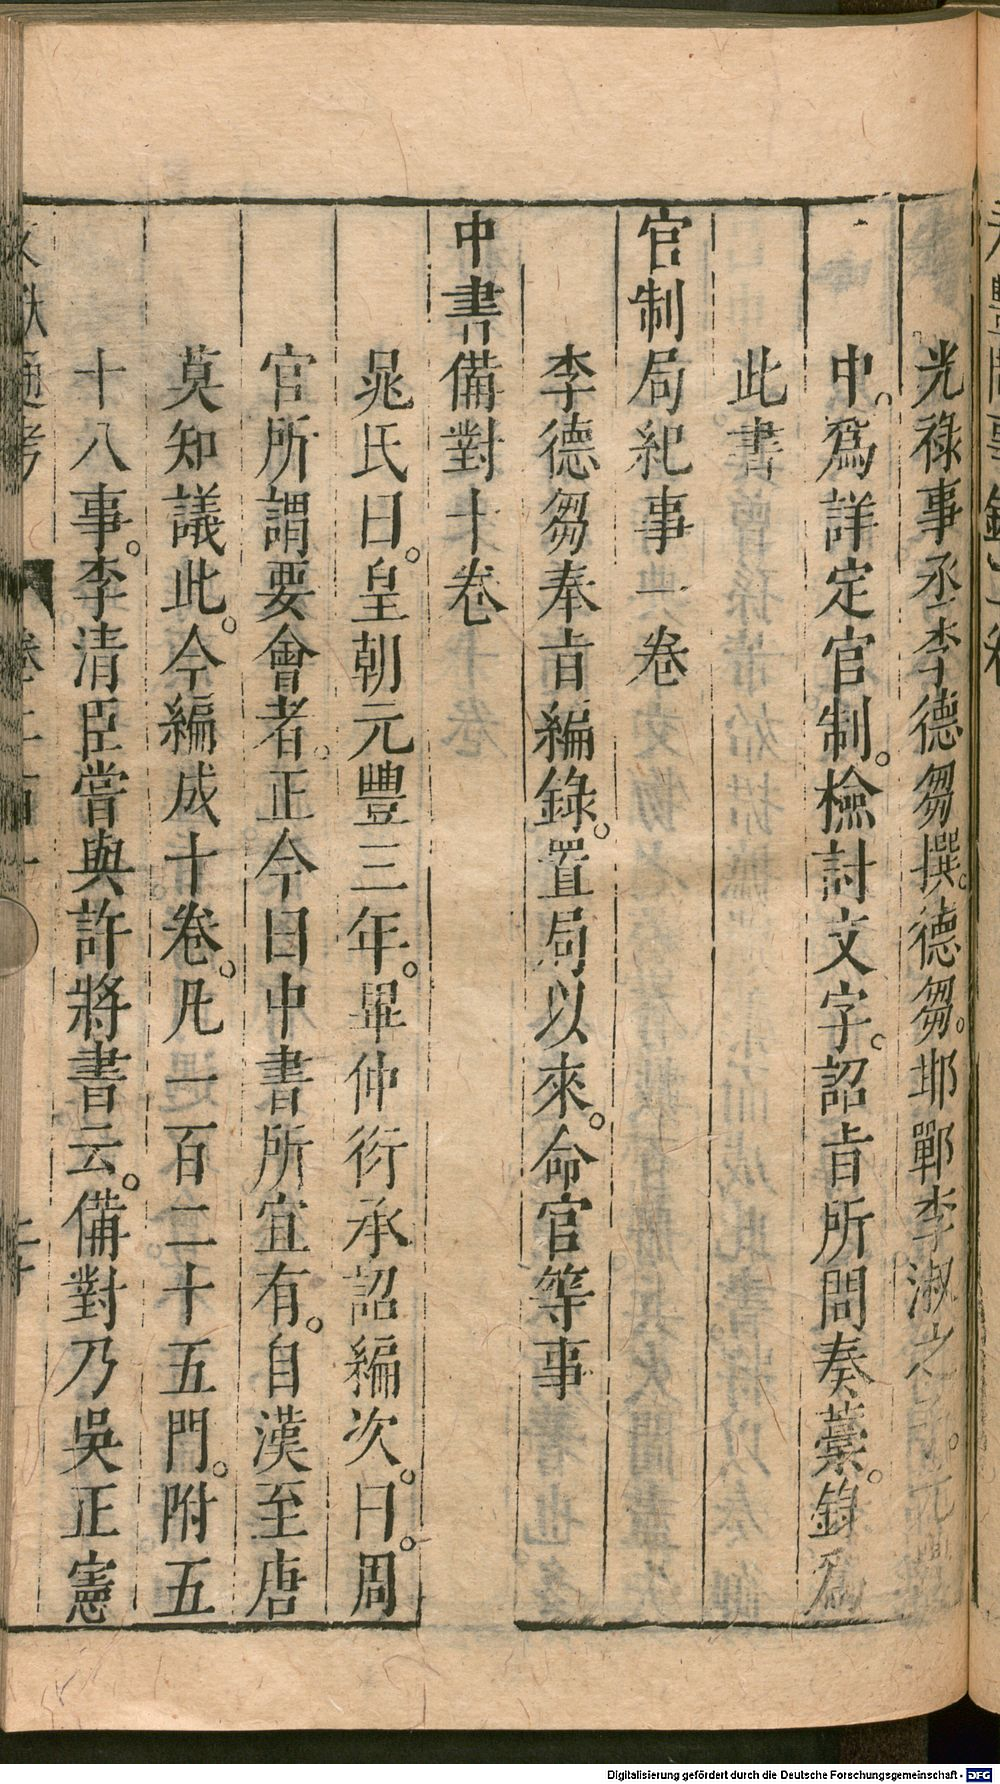 光祿事丞李德芻撰。德芻。邯鄲李淑之
中。爲詳定官制。檢討文字。詔旨所問奏藁。錄爲
此書
官制局紀事一卷
李德芻奉旨編錄。置局以來。命官等事
中書備對十卷
晁氏曰。皇朝元豐三年。畢仲衍承詔編次。曰。周
官所謂要會者。正今日中書所宜有。自漢至唐
莫知議此。今編成十卷。凡一百二十五門。附五
十八事。李清臣嘗與許將書云。備對乃吳正憲
文獻通考
卷二百
Digitalisierung gefördert durch die Deutsche Forschungsgemeinschaft - DFG